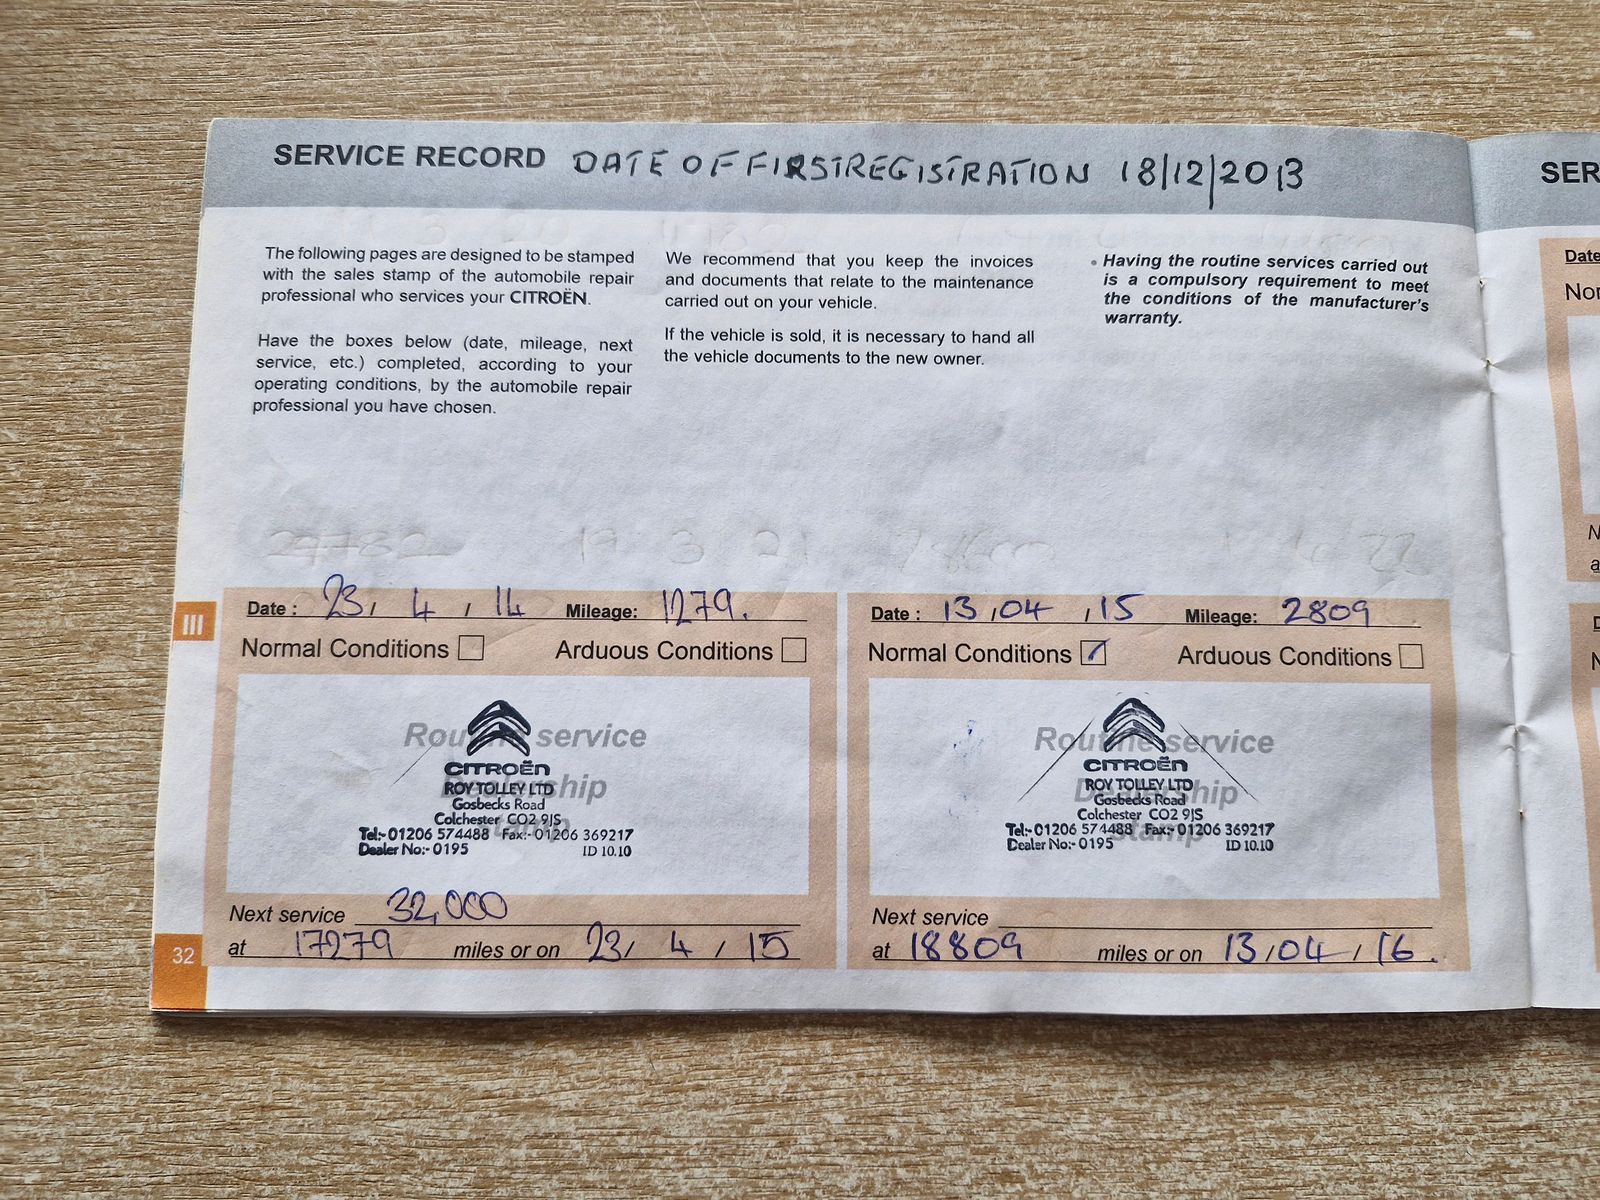 SERVICE RECORD DATE OF FIRST REGISTRATION 18/12/2013
The following pages are designed to be stamped
with the sales stamp of the automobile repair
professional who services your CITROËN.
Have the boxes below (date, mileage, next
service, etc.) completed, according to your
operating conditions, by the automobile repair
professional you have chosen.
We recommend that you keep the invoices
and documents that relate to the maintenance
carried out on your vehicle.
If the vehicle is sold, it is necessary to hand all
the vehicle documents to the new owner.
• Having the routine services carried out
is a compulsory requirement to meet
the conditions of the manufacturer's
warranty.
III
Date : 23, 4, 14 Mileage: 1279.
Normal Conditions Arduous Conditions
Routine service
Dealership
stamp
CITROËN
ROY TOLLEY LTD
Gosbecks Road
Colchester CO2 9JS
Tel:- 01206 574488 Fax:- 01206 369217
Dealer No:- 0195 ID 10.10
Next service 32,000
at 17279 miles or on 23, 4, 15
Date : 13,04,15 Mileage: 2809
Normal Conditions Arduous Conditions
Routine service
Dealership
stamp
CITROËN
ROY TOLLEY LTD
Gosbecks Road
Colchester CO2 9JS
Tel:- 01206 574488 Fax:- 01206 369217
Dealer No:- 0195 ID 10.10
Next service
at 18809 miles or on 13,04,16.
32
SER
Date
Nor